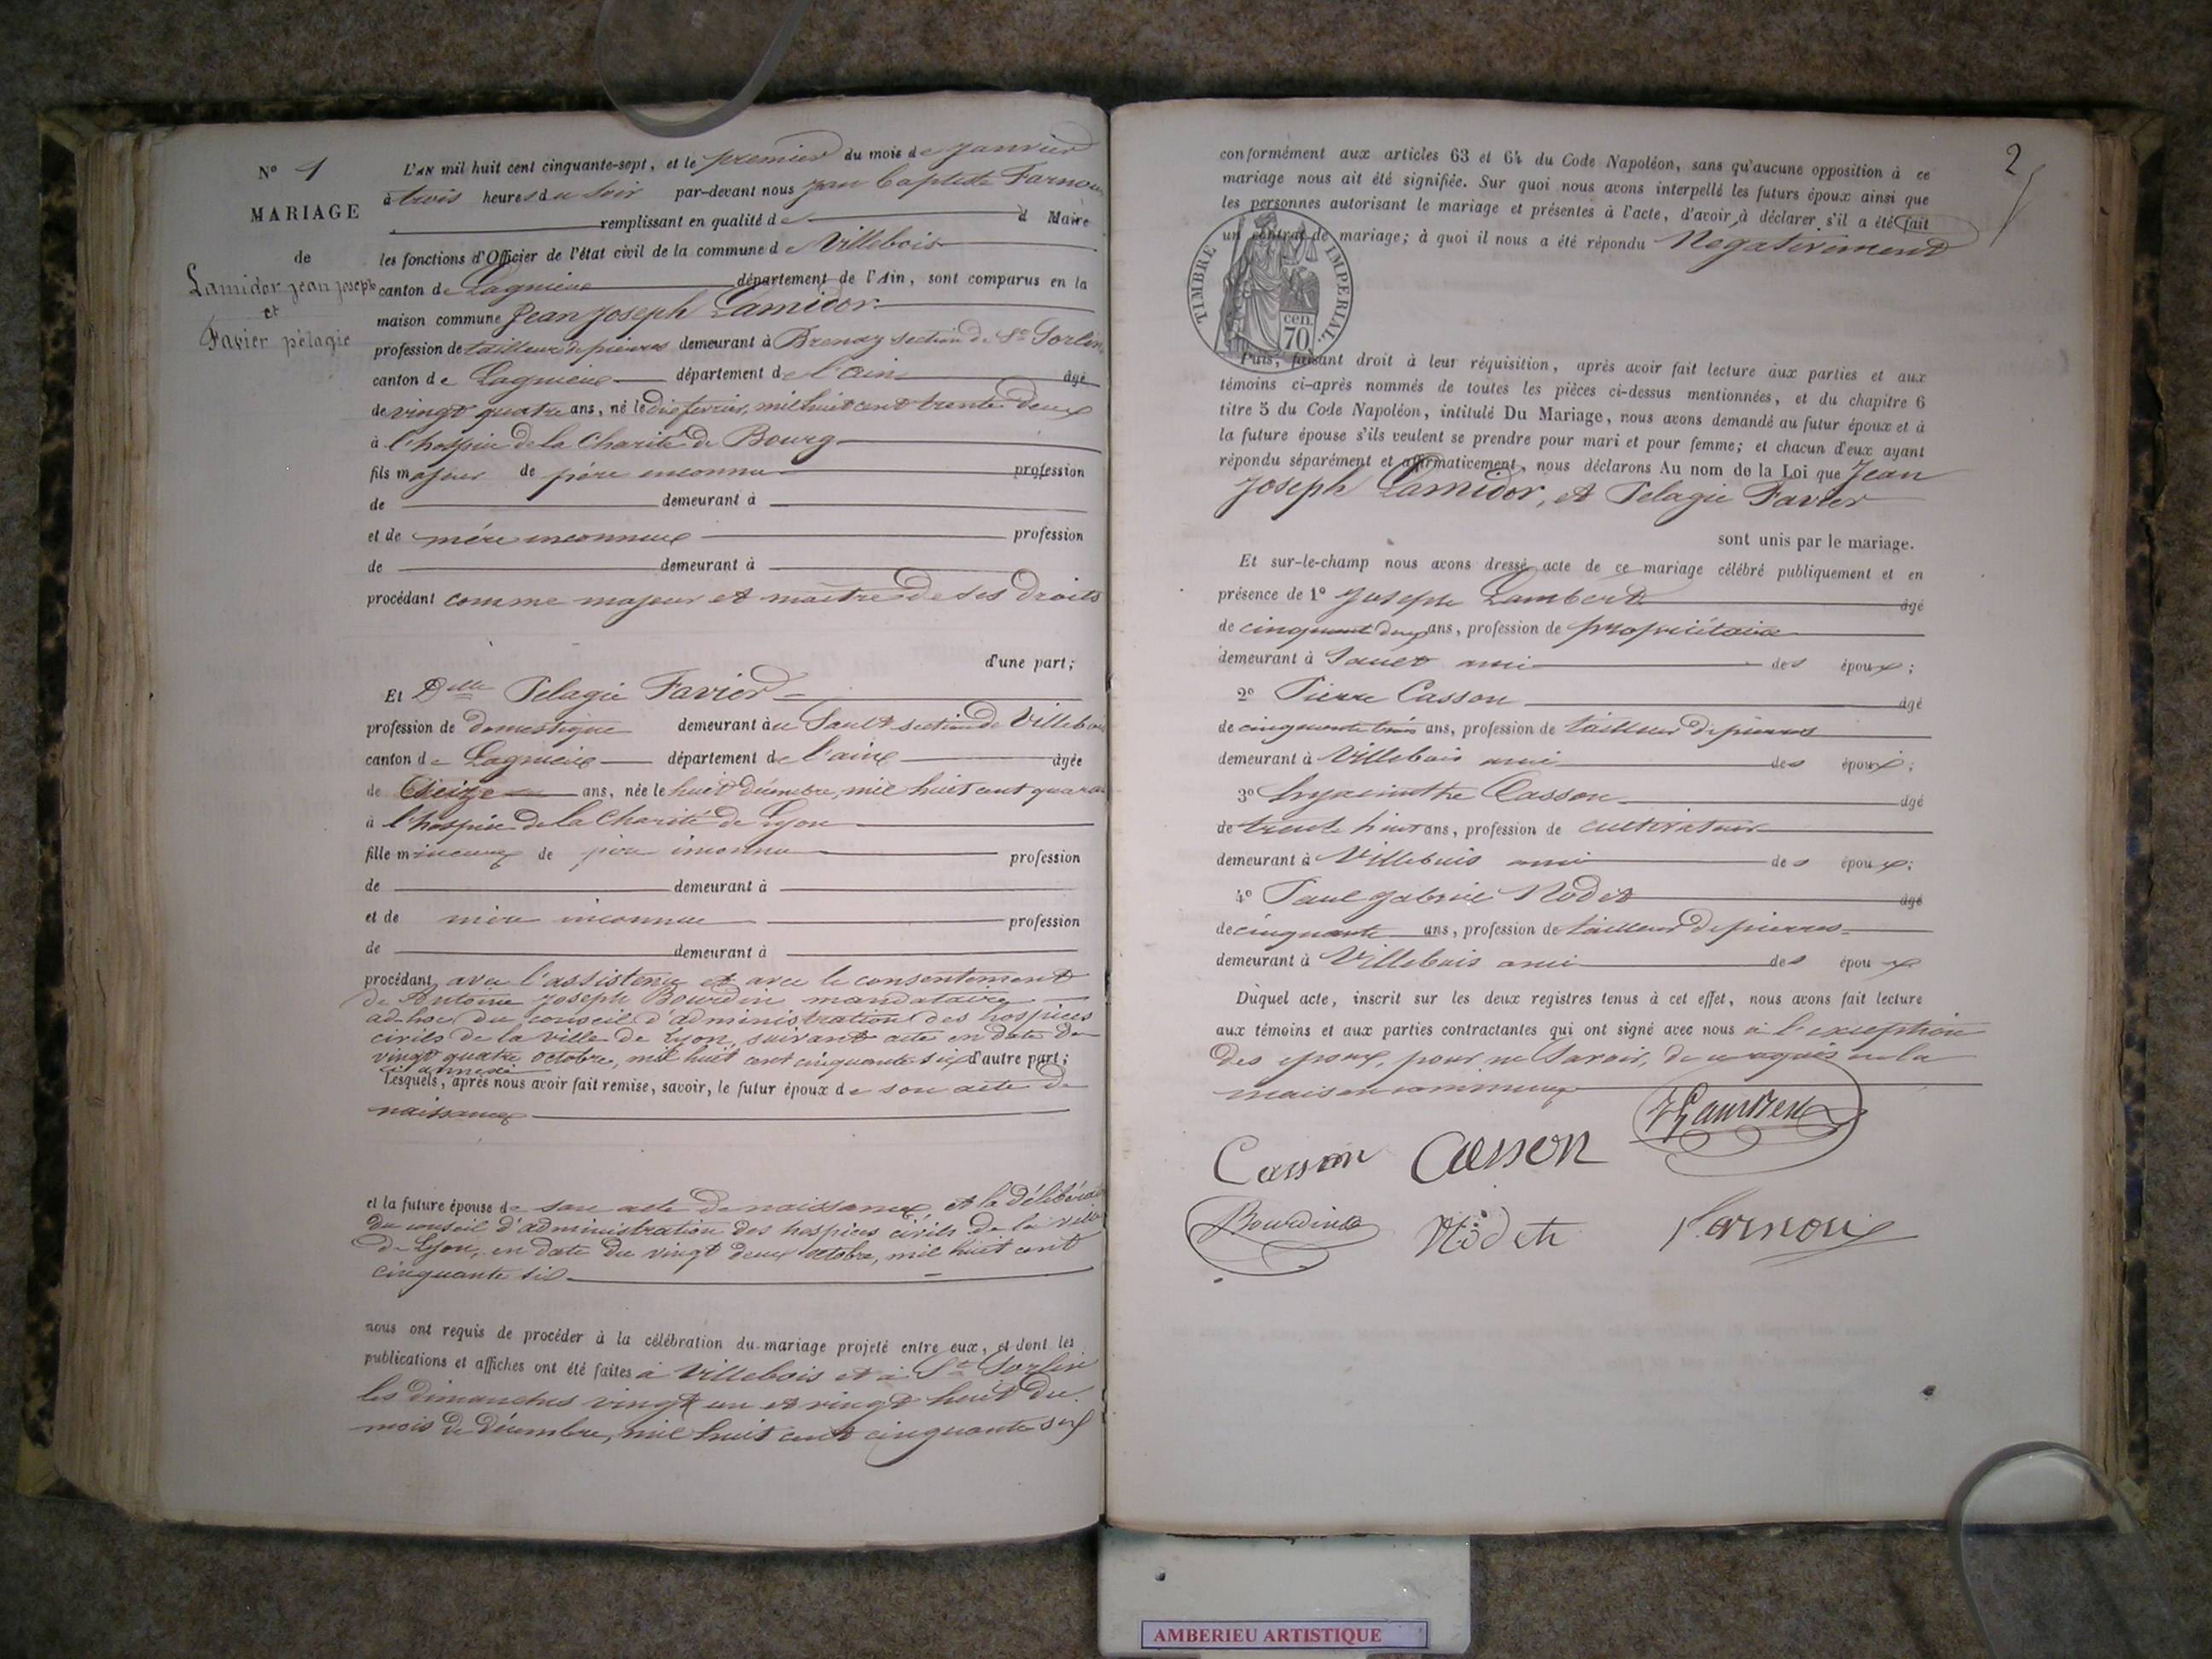 N° 1
MARIAGE
de
Lamidor Jean Joseph
et
Favier pélagie
L'AN mil huit cent cinquante-sept, et le premier du mois de Janvier
à trois heures du soir par-devant nous Jean Baptiste Farnoux
remplissant en qualité de d Maire
les fonctions d'Officier de l'état civil de la commune de Villebois
canton de Lagnieux département de l'Ain, sont comparus en la
maison commune Jean Joseph Lamidor
profession de tailleur de pierres demeurant à Brenaz section de St Sorlin
canton de Lagnieux département de l'ain âgé
de vingt quatre ans, né le dix fevrier, mil huit cent trente deux
à l'hospice de la Charité de Bourg
fils majeur de père inconnu profession
de demeurant à
et de mère inconnue profession
de demeurant à
procédant comme majeur et maître de ses droits
d'une part;
Et Delle Pelagie Favier
profession de domestique demeurant au Sault section de Villebois
canton de Lagnieux département de l'ain âgée
de Seize ans, née le huit décembre, mil huit cent quarante
à l'hospice de la Charité de Lyon
fille mineure de père inconnu profession
de demeurant à
et de mère inconnue profession
de demeurant à
procédant avec l'assistence et avec le consentement
de Antoine Joseph Bourdin mandataire
ad-hoc du conseil d'administration des hospices
civils de la ville de Lyon, suivant acte en date du
vingt quatre octobre, mil huit cent cinquante six d'autre part;
ci annexé
Lesquels, après nous avoir fait remise, savoir, le futur époux de son acte de
naissance
et la future épouse de son acte de naissance, et la délibération
du conseil d'administration des hospices civils de la ville
de Lyon, en date du vingt deux octobre, mil huit cent
cinquante six
nous ont requis de procéder à la célébration du mariage projeté entre eux, et dont les
publications et affiches ont été faites à Villebois et à St Sorlin
les dimanches vingt un et vingt huit du
mois de Décembre, mil huit cent cinquante six
2
conformément aux articles 63 et 64 du Code Napoléon, sans qu'aucune opposition à ce
mariage nous ait été signifiée. Sur quoi nous avons interpellé les futurs époux ainsi que
les personnes autorisant le mariage et présentes à l'acte, d'avoir à déclarer s'il a été fait
un contrat de mariage; à quoi il nous a été répondu Négativement
TIMBRE IMPERIAL
cen.
70
Puis, faisant droit à leur réquisition, après avoir fait lecture aux parties et aux
témoins ci-après nommés de toutes les pièces ci-dessus mentionnées, et du chapitre 6
titre 5 du Code Napoléon, intitulé Du Mariage, nous avons demandé au futur époux et à
la future épouse s'ils veulent se prendre pour mari et pour femme; et chacun d'eux ayant
répondu séparément et affirmativement, nous déclarons Au nom de la Loi que Jean
Joseph Lamidor, et Pelagie Favier
sont unis par le mariage.
Et sur-le-champ nous avons dressé acte de ce mariage célébré publiquement et en
présence de 1° Joseph Lambert âgé
de cinquant deux ans, profession de propriétaire
demeurant à Sault ami des époux;
2° Pierre Casson âgé
de cinquante trois ans, profession de tailleur de pierres
demeurant à Villebois ami des époux;
3° hyacinthe Casson âgé
de trente huit ans, profession de cultivateur
demeurant à Villebois ami des époux;
4° Paul gabriel Nodet âgé
de cinquante ans, profession de tailleur de pierres
demeurant à Villebois ami des époux
Duquel acte, inscrit sur les deux registres tenus à cet effet, nous avons fait lecture
aux témoins et aux parties contractantes qui ont signé avec nous à l'exception
des époux, pour ne savoir, de ce requis en la
maison commune
Casson Casson J Lambert
Bourdin Nodet Farnoux
AMBERIEU ARTISTIQUE